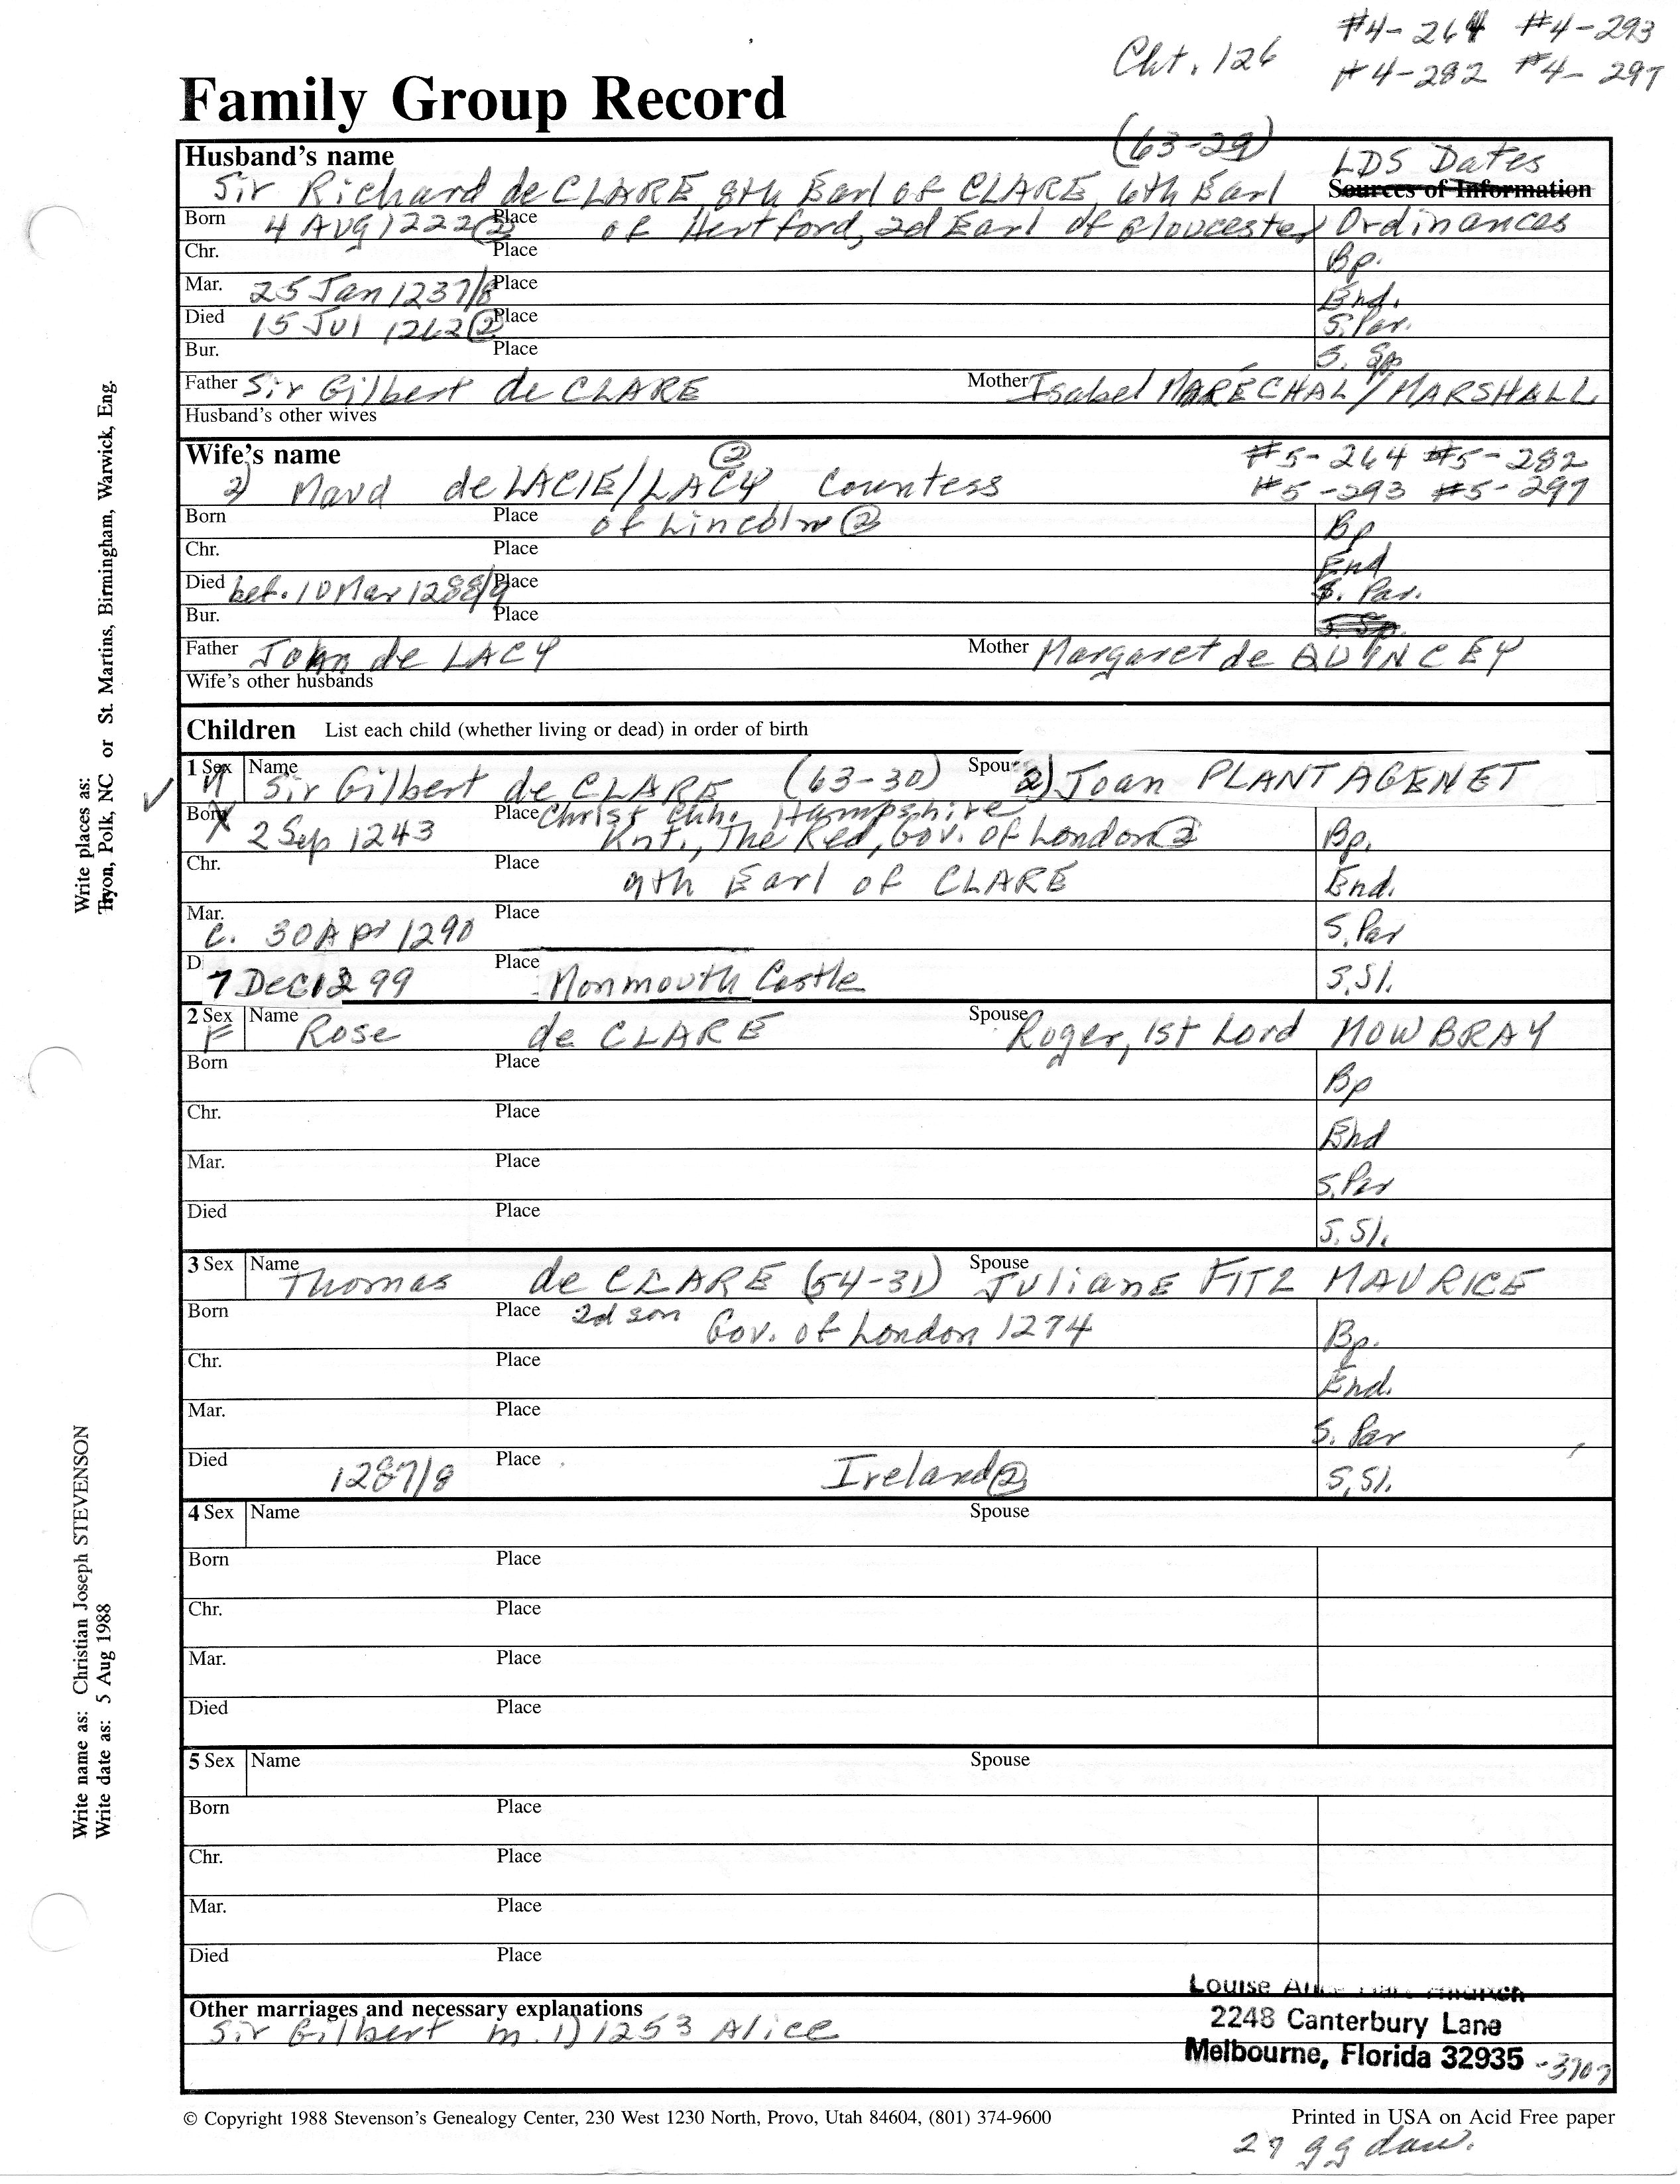 #4-264 #4-293
Cht. 126 #4-282 #4-297
Family Group Record
(63-29)
Husband's name LDS Dates
Sir Richard de CLARE, 8th Earl of CLARE, 6th Earl Sources of Information
Born 4 AUG 1222 (2) Place of Hertford, 2d Earl of Gloucester Ordinances
Chr. Place Bp.
Mar. 25 Jan 1237/8 Place End.
Died 15 Jul 1262 (2) Place S. Par.
Bur. Place S. Sp.
Father Sir Gilbert de CLARE Mother Isabel MARÉCHAL/MARSHALL
Husband's other wives
Wife's name (2) #5-264 #5-282
2) Maud de LACIE/LACY, Countess #5-293 #5-297
Born Place of Lincoln (2) Bp
Chr. Place End
Died bef. 10 Mar 1288/9 Place S. Par.
Bur. Place S. Sp.
Father John de LACY Mother Margaret de QUINCEY
Wife's other husbands
Children List each child (whether living or dead) in order of birth
1 Sex M Name Sir Gilbert de CLARE (63-30) Spouse 2) Joan PLANTAGENET
Born 2 Sep 1243 Place Christ Chh. Hampshire
Knt., The Red, Gov. of London (2) Bp.
Chr. Place 9th Earl of CLARE End.
Mar. c. 30 Apr 1290 Place S. Par
D 7 Dec 1299 Place Monmouth Castle S. Sl.
2 Sex F Name Rose de CLARE Spouse Roger, 1st Lord MOWBRAY
Born Place Bp
Chr. Place End
Mar. Place S. Par
Died Place S. Sl.
3 Sex Name Thomas de CLARE (54-31) Spouse Juliane FITZ MAURICE
Born Place 2d son Gov. of London 1274 Bp.
Chr. Place End.
Mar. Place S. Par
Died 1287/8 Place Ireland (2) S. Sl.
4 Sex Name Spouse
Born Place
Chr. Place
Mar. Place
Died Place
5 Sex Name Spouse
Born Place
Chr. Place
Mar. Place
Died Place
Louise
Other marriages and necessary explanations
Sir Gilbert m. 1) 1253 Alice
2248 Canterbury Lane
Melbourne, Florida 32935 -3707
© Copyright 1988 Stevenson's Genealogy Center, 230 West 1230 North, Provo, Utah 84604, (801) 374-9600 Printed in USA on Acid Free paper
27 gg dau.
Write places as: Tryon, Polk, NC or St. Martins, Birmingham, Warwick, Eng.
Write name as: Christian Joseph STEVENSON
Write date as: 5 Aug 1988